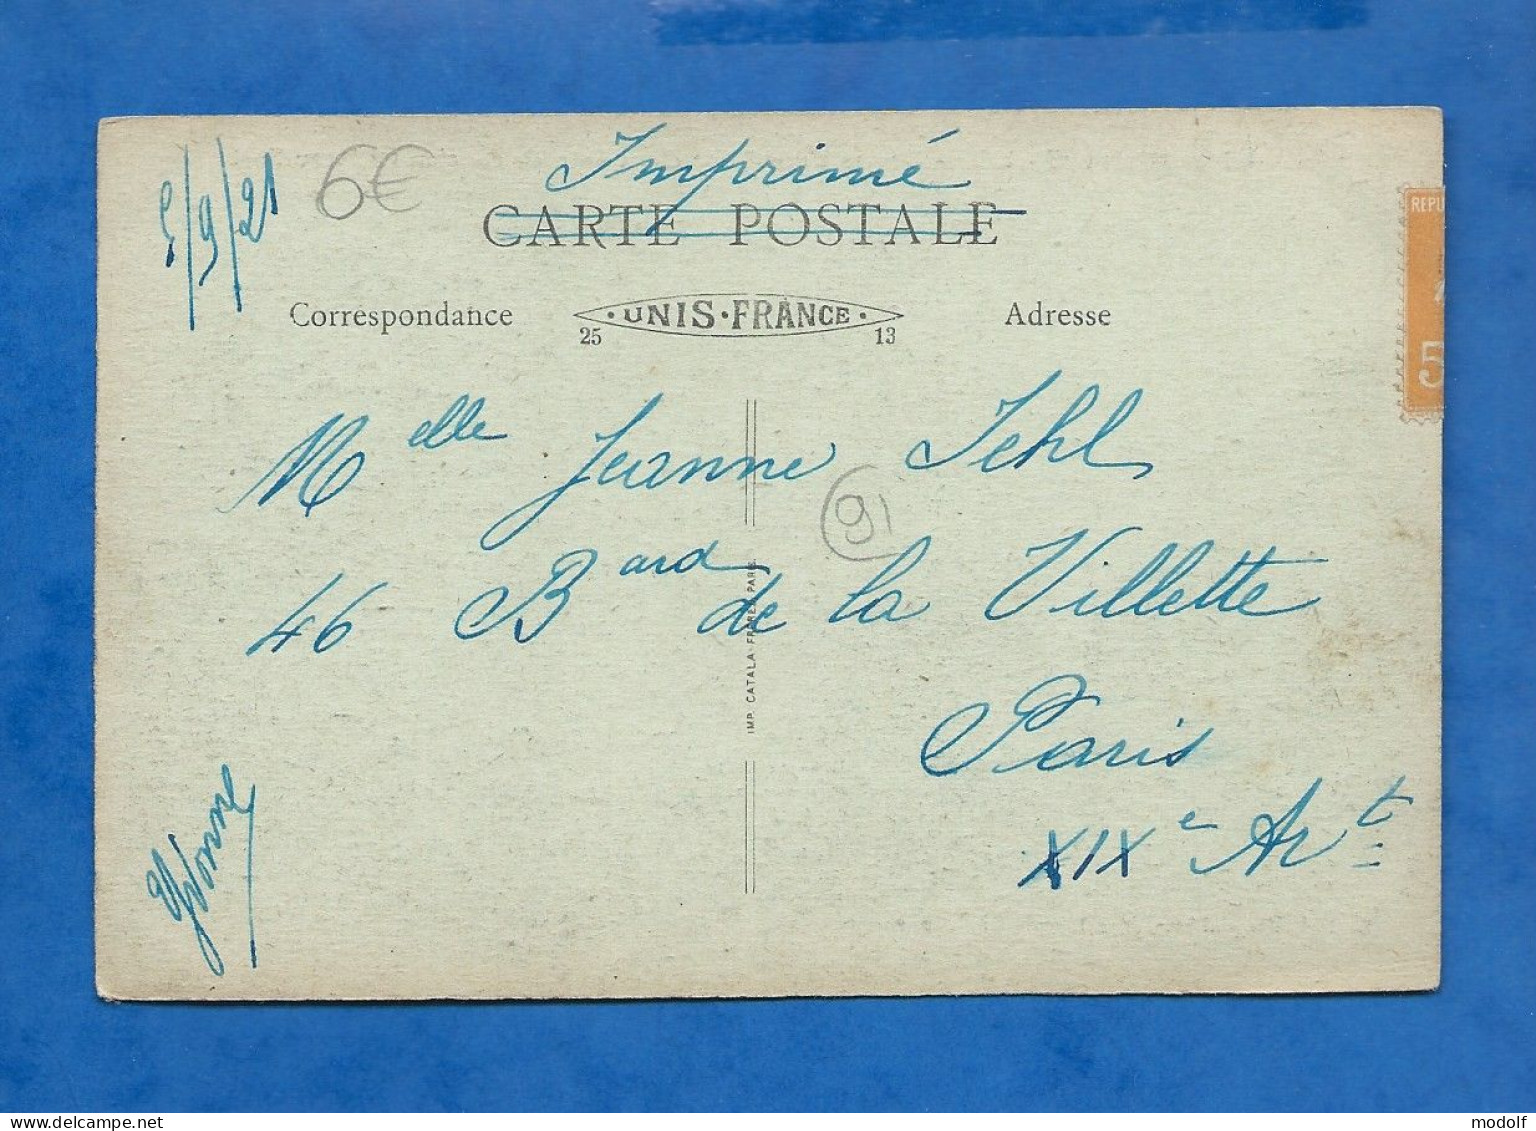 Imprimé
5/9/21
6€
CARTE POSTALE
REPU
5
Correspondance
· UNIS · FRANCE ·
25 13
Adresse
Melle Jeanne Jehl
91
46 Bard de la Villette
Paris
XIXe Art
IMP. CATALA FRERES PARIS
Yvonne
www.delcampe.net
modolf